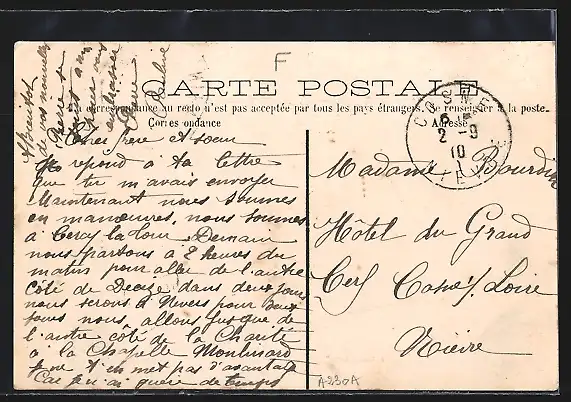 F
CARTE POSTALE
La correspondance au recto n'est pas acceptée par tous les pays étrangers. Se renseigner à la poste.
Correspondance
Adresse
COSNE
2 - 9
10
Chers frere et soeur
Je repond à ta lettre
que tu m'avais envoyer
Maintenant nous sommes
en manoeuvres, nous sommes
à Cercy la Tour Demain
nous partons à 2 heures du
matin pour aller de l'autre
côté de Decize dans deux jours
nous serons à Nevers pour deux
jours nous allons jusque de
l'autre côté de la Charité
à la Chapelle Montlinard
je ne t'en met pas d'avantage
Car je n'ai guère de temps
A bientôt
de vos nouvelles
Madame Bourdin
Hôtel du Grand
Cerf Cosne s/ Loire
Nièvre
A230A